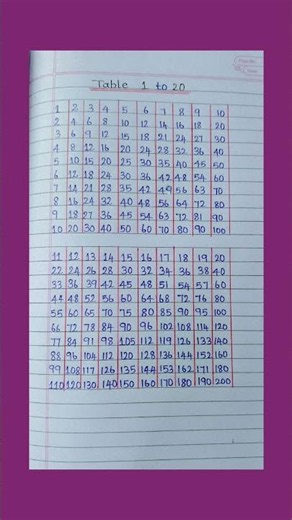 Table 1 to 20
1 2 3 4 5 6 7 8 9 10
2 4 6 8 10 12 14 16 18 20
3 6 9 12 15 18 21 24 27 30
4 8 12 16 20 24 28 32 36 40
5 10 15 20 25 30 35 40 45 50
6 12 18 24 30 36 42 48 54 60
7 14 21 28 35 42 49 56 63 70
8 16 24 32 40 48 56 64 72 80
9 18 27 36 45 54 63 72 81 90
10 20 30 40 50 60 70 80 90 100
11 12 13 14 15 16 17 18 19 20
22 24 26 28 30 32 34 36 38 40
33 36 39 42 45 48 51 54 57 60
44 48 52 56 60 64 68 72 76 80
55 60 65 70 75 80 85 90 95 100
66 72 78 84 90 96 102 108 114 120
77 84 91 98 105 112 119 126 133 140
88 96 104 112 120 128 136 144 152 160
99 108 117 126 135 144 153 162 171 180
110 120 130 140 150 160 170 180 190 200